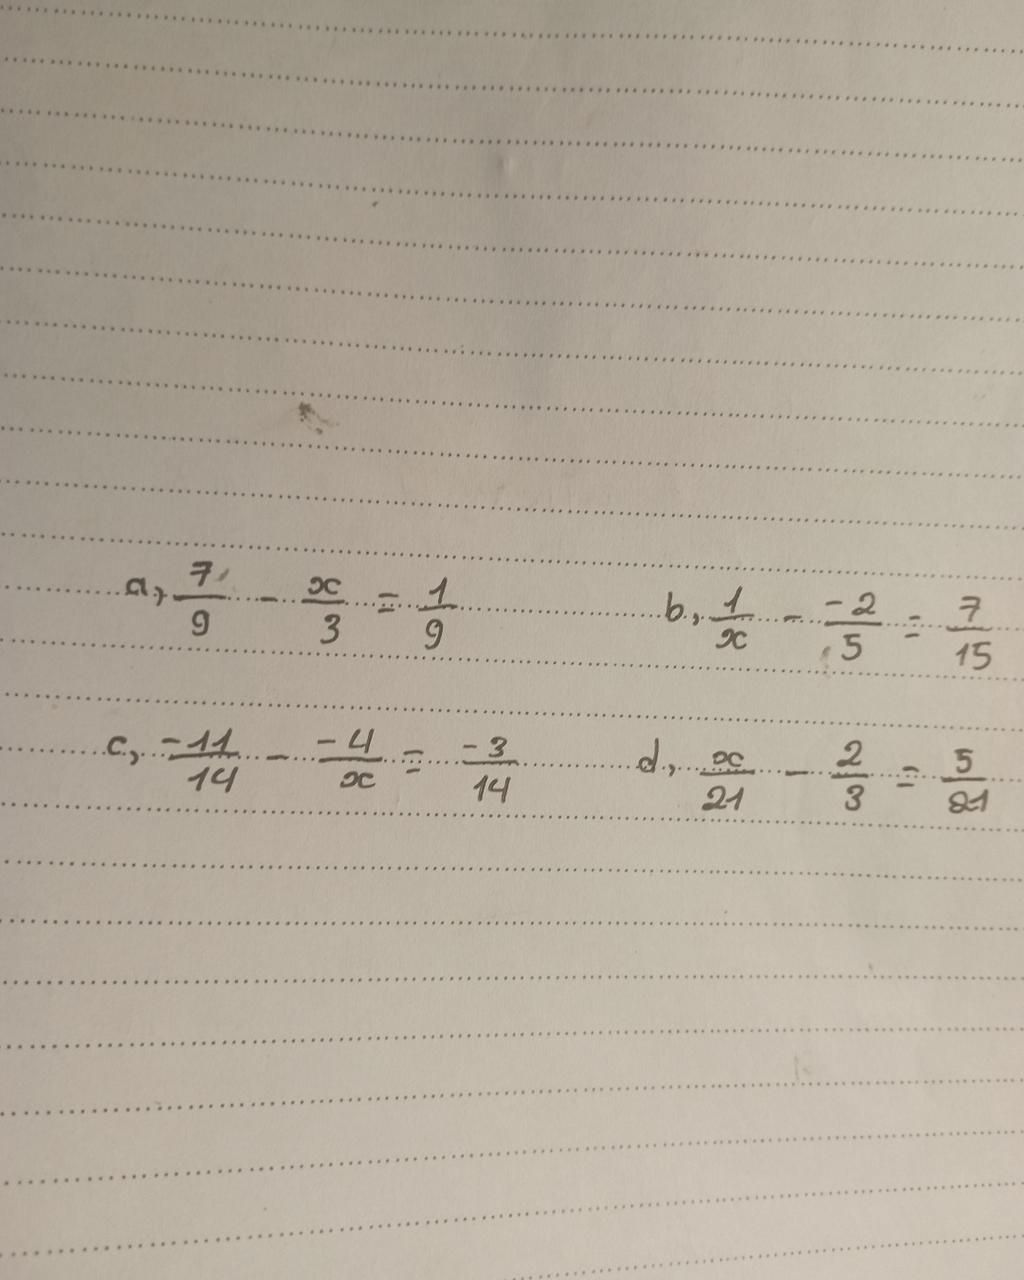 a, 7/9 - x/3 = 1/9 b, 1/x - -2/5 = 7/15
c, -11/14 - -4/x = -3/14 d, x/21 - 2/3 = 5/21